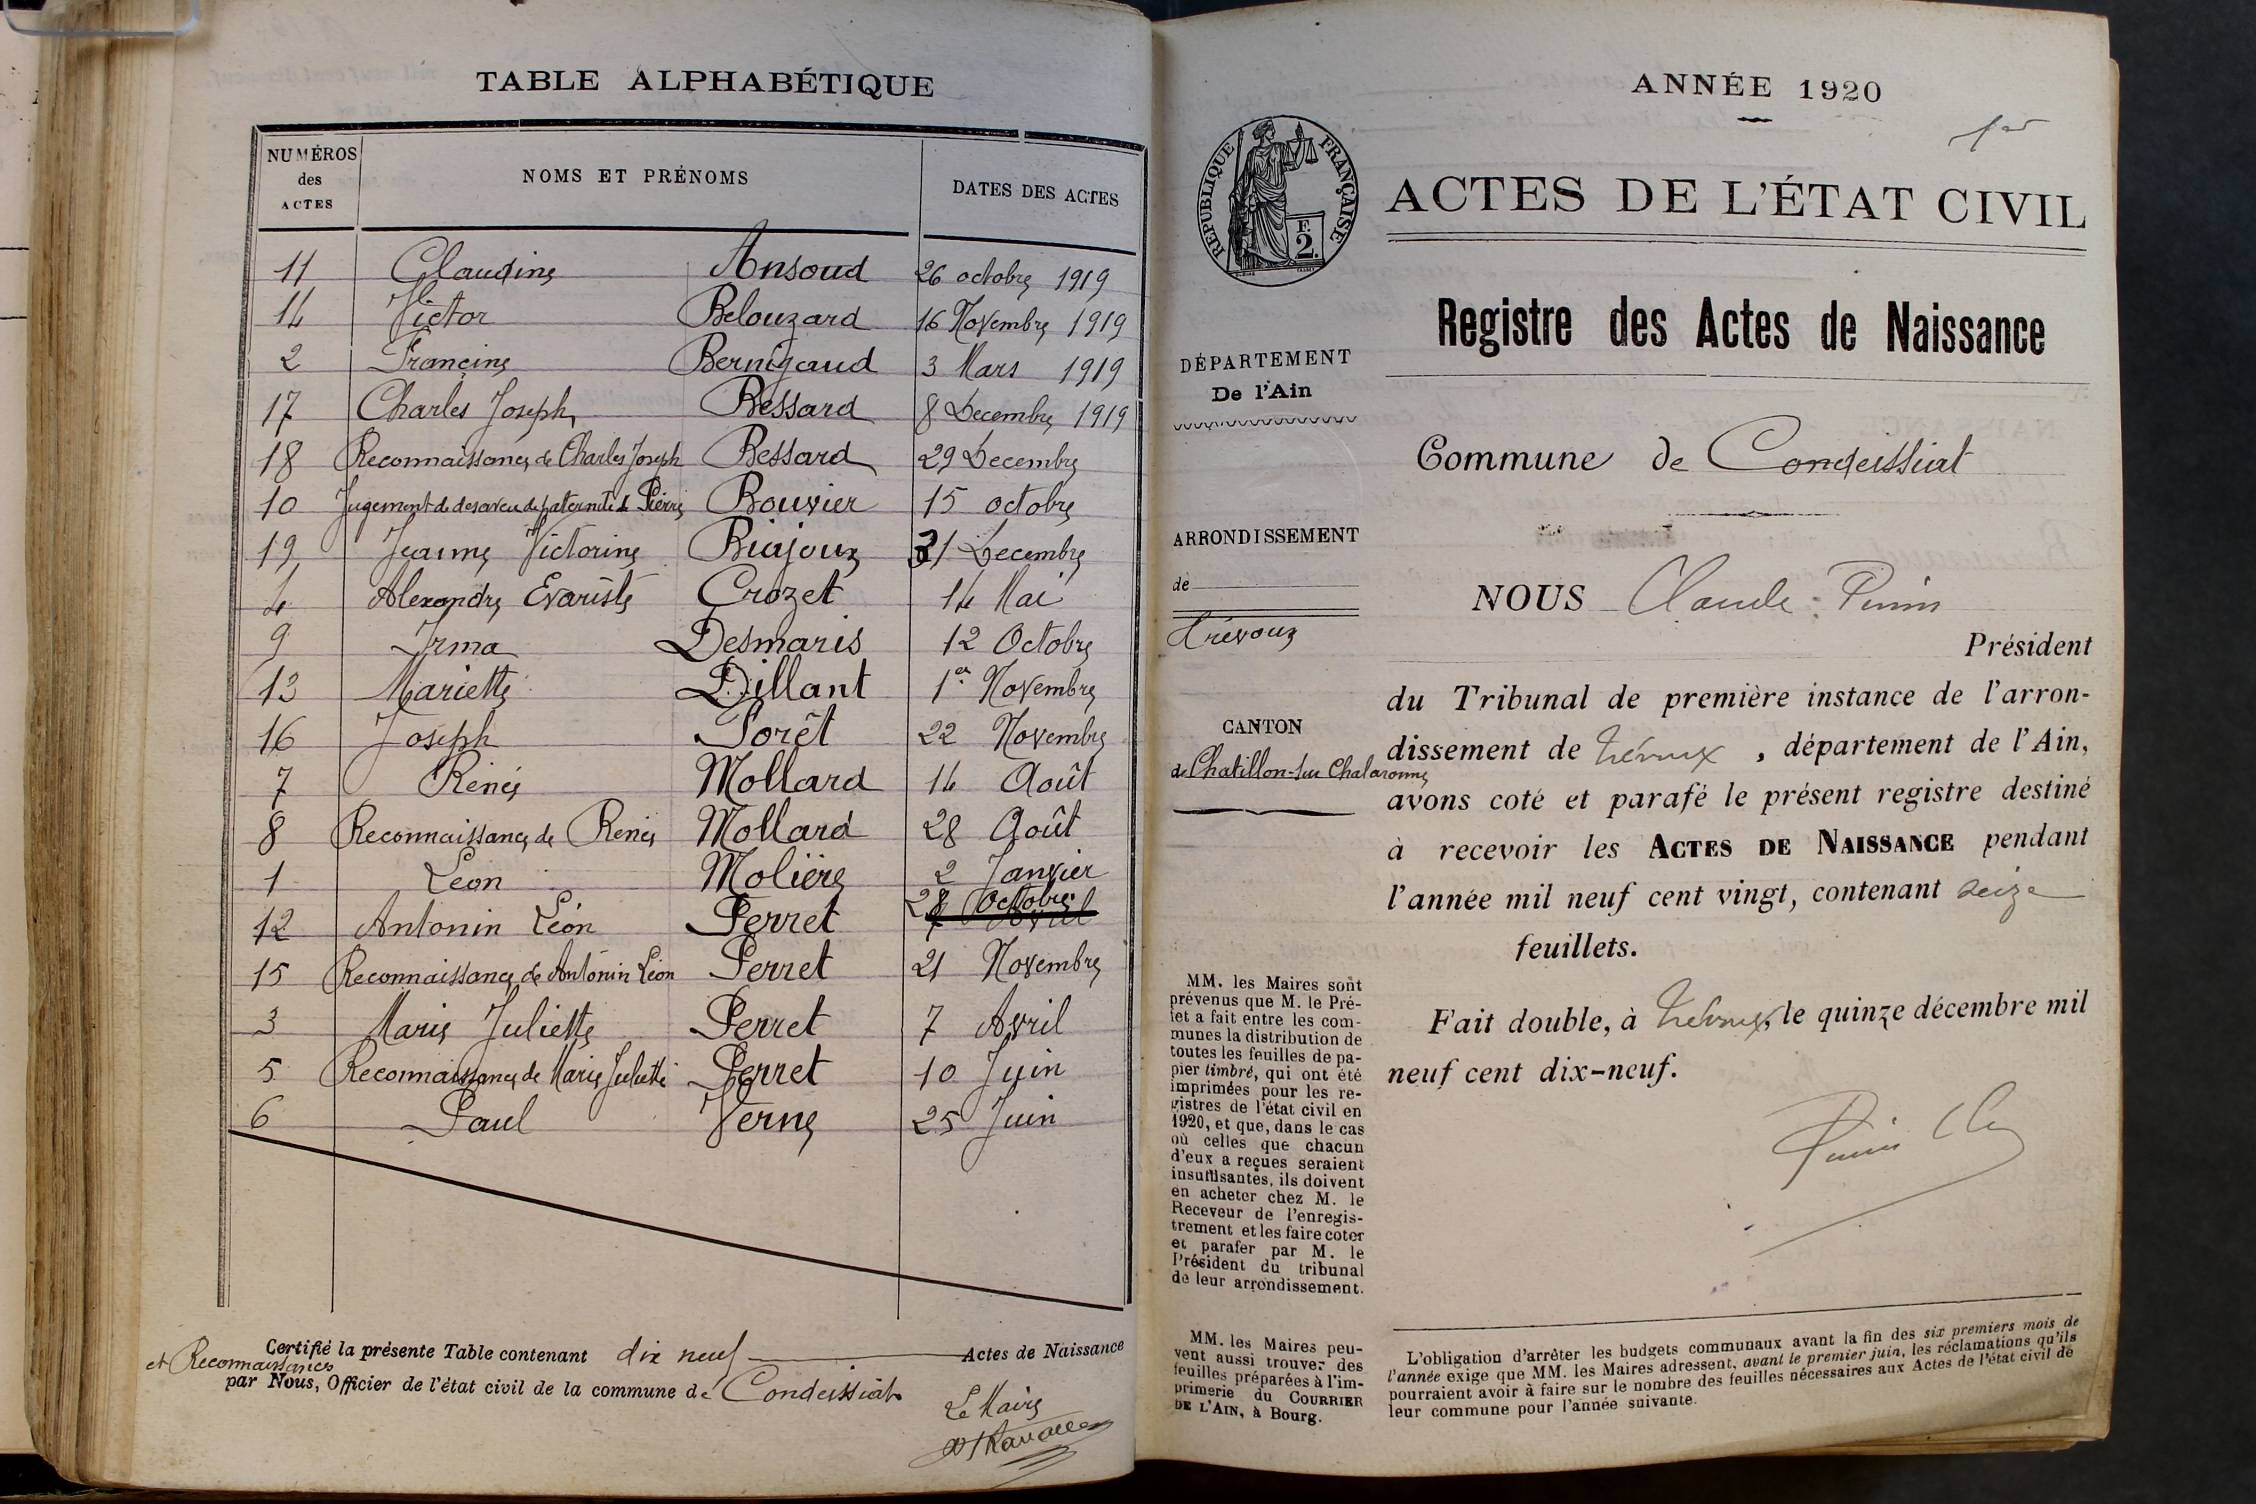 TABLE ALPHABÉTIQUE
NUMÉROS des ACTES | NOMS ET PRÉNOMS | DATES DES ACTES
11 Claudine Ansoud 26 octobre 1919
14 Victor Belouzard 16 Novembre 1919
2 Francine Bernigaud 3 Mars 1919
17 Charles Joseph Bessard 8 Decembre 1919
18 Reconnaissance de Charles Joseph Bessard 29 Decembre
10 Jugement de desaveu de paternité de Pierre Bouvier 15 octobre
19 Jeanne Victorine Biajoux 31 Decembre
4 Alexandre Evariste Crozet 14 Mai
9 Irma Desmaris 12 Octobre
13 Mariette Dillant 1er Novembre
16 Joseph Forêt 22 Novembre
7 Rénée Mollard 14 Août
8 Reconnaissance de Renée Mollard 28 Août
1 Léon Molière 2 Janvier
12 Antonin Léon Perret 28 Octobre
15 Reconnaissance de Antonin Léon Perret 21 Novembre
3 Marie Juliette Perret 7 Avril
5 Reconnaissance de Marie Juliette Perret 10 Juin
6 Paul Verne 25 Juin
Certifié la présente Table contenant dix neuf Actes de Naissance
et Reconnaissances
par Nous, Officier de l'état civil de la commune de Condeissiat
Le Maire
ANNÉE 1920
1er
RÉPUBLIQUE FRANÇAISE
F. 2.
ACTES DE L'ÉTAT CIVIL
Registre des Actes de Naissance
DÉPARTEMENT
De l'Ain
Commune de Condeissiat
ARRONDISSEMENT
de
Trévoux
CANTON
de Chatillon-sur Chalaronne
NOUS Claude
Président
du Tribunal de première instance de l'arron-
dissement de Trévoux , département de l'Ain,
avons coté et parafé le présent registre destiné
à recevoir les ACTES DE NAISSANCE pendant
l'année mil neuf cent vingt, contenant seize
feuillets.
Fait double, à Trévoux, le quinze décembre mil
neuf cent dix-neuf.
MM. les Maires sont
prévenus que M. le Pré-
fet a fait entre les com-
munes la distribution de
toutes les feuilles de pa-
pier timbré, qui ont été
imprimées pour les re-
gistres de l'état civil en
1920, et que, dans le cas
où celles que chacun
d'eux a reçues seraient
insuffisantes, ils doivent
en acheter chez M. le
Receveur de l'enregis-
trement et les faire coter
et parafer par M. le
Président du tribunal
de leur arrondissement.
MM. les Maires peu-
vent aussi trouver des
feuilles préparées à l'im-
primerie du COURRIER
DE L'AIN, à Bourg.
L'obligation d'arrêter les budgets communaux avant la fin des six premiers mois de
l'année exige que MM. les Maires adressent, avant le premier juin, les réclamations qu'ils
pourraient avoir à faire sur le nombre des feuilles nécessaires aux Actes de l'état civil de
leur commune pour l'année suivante.